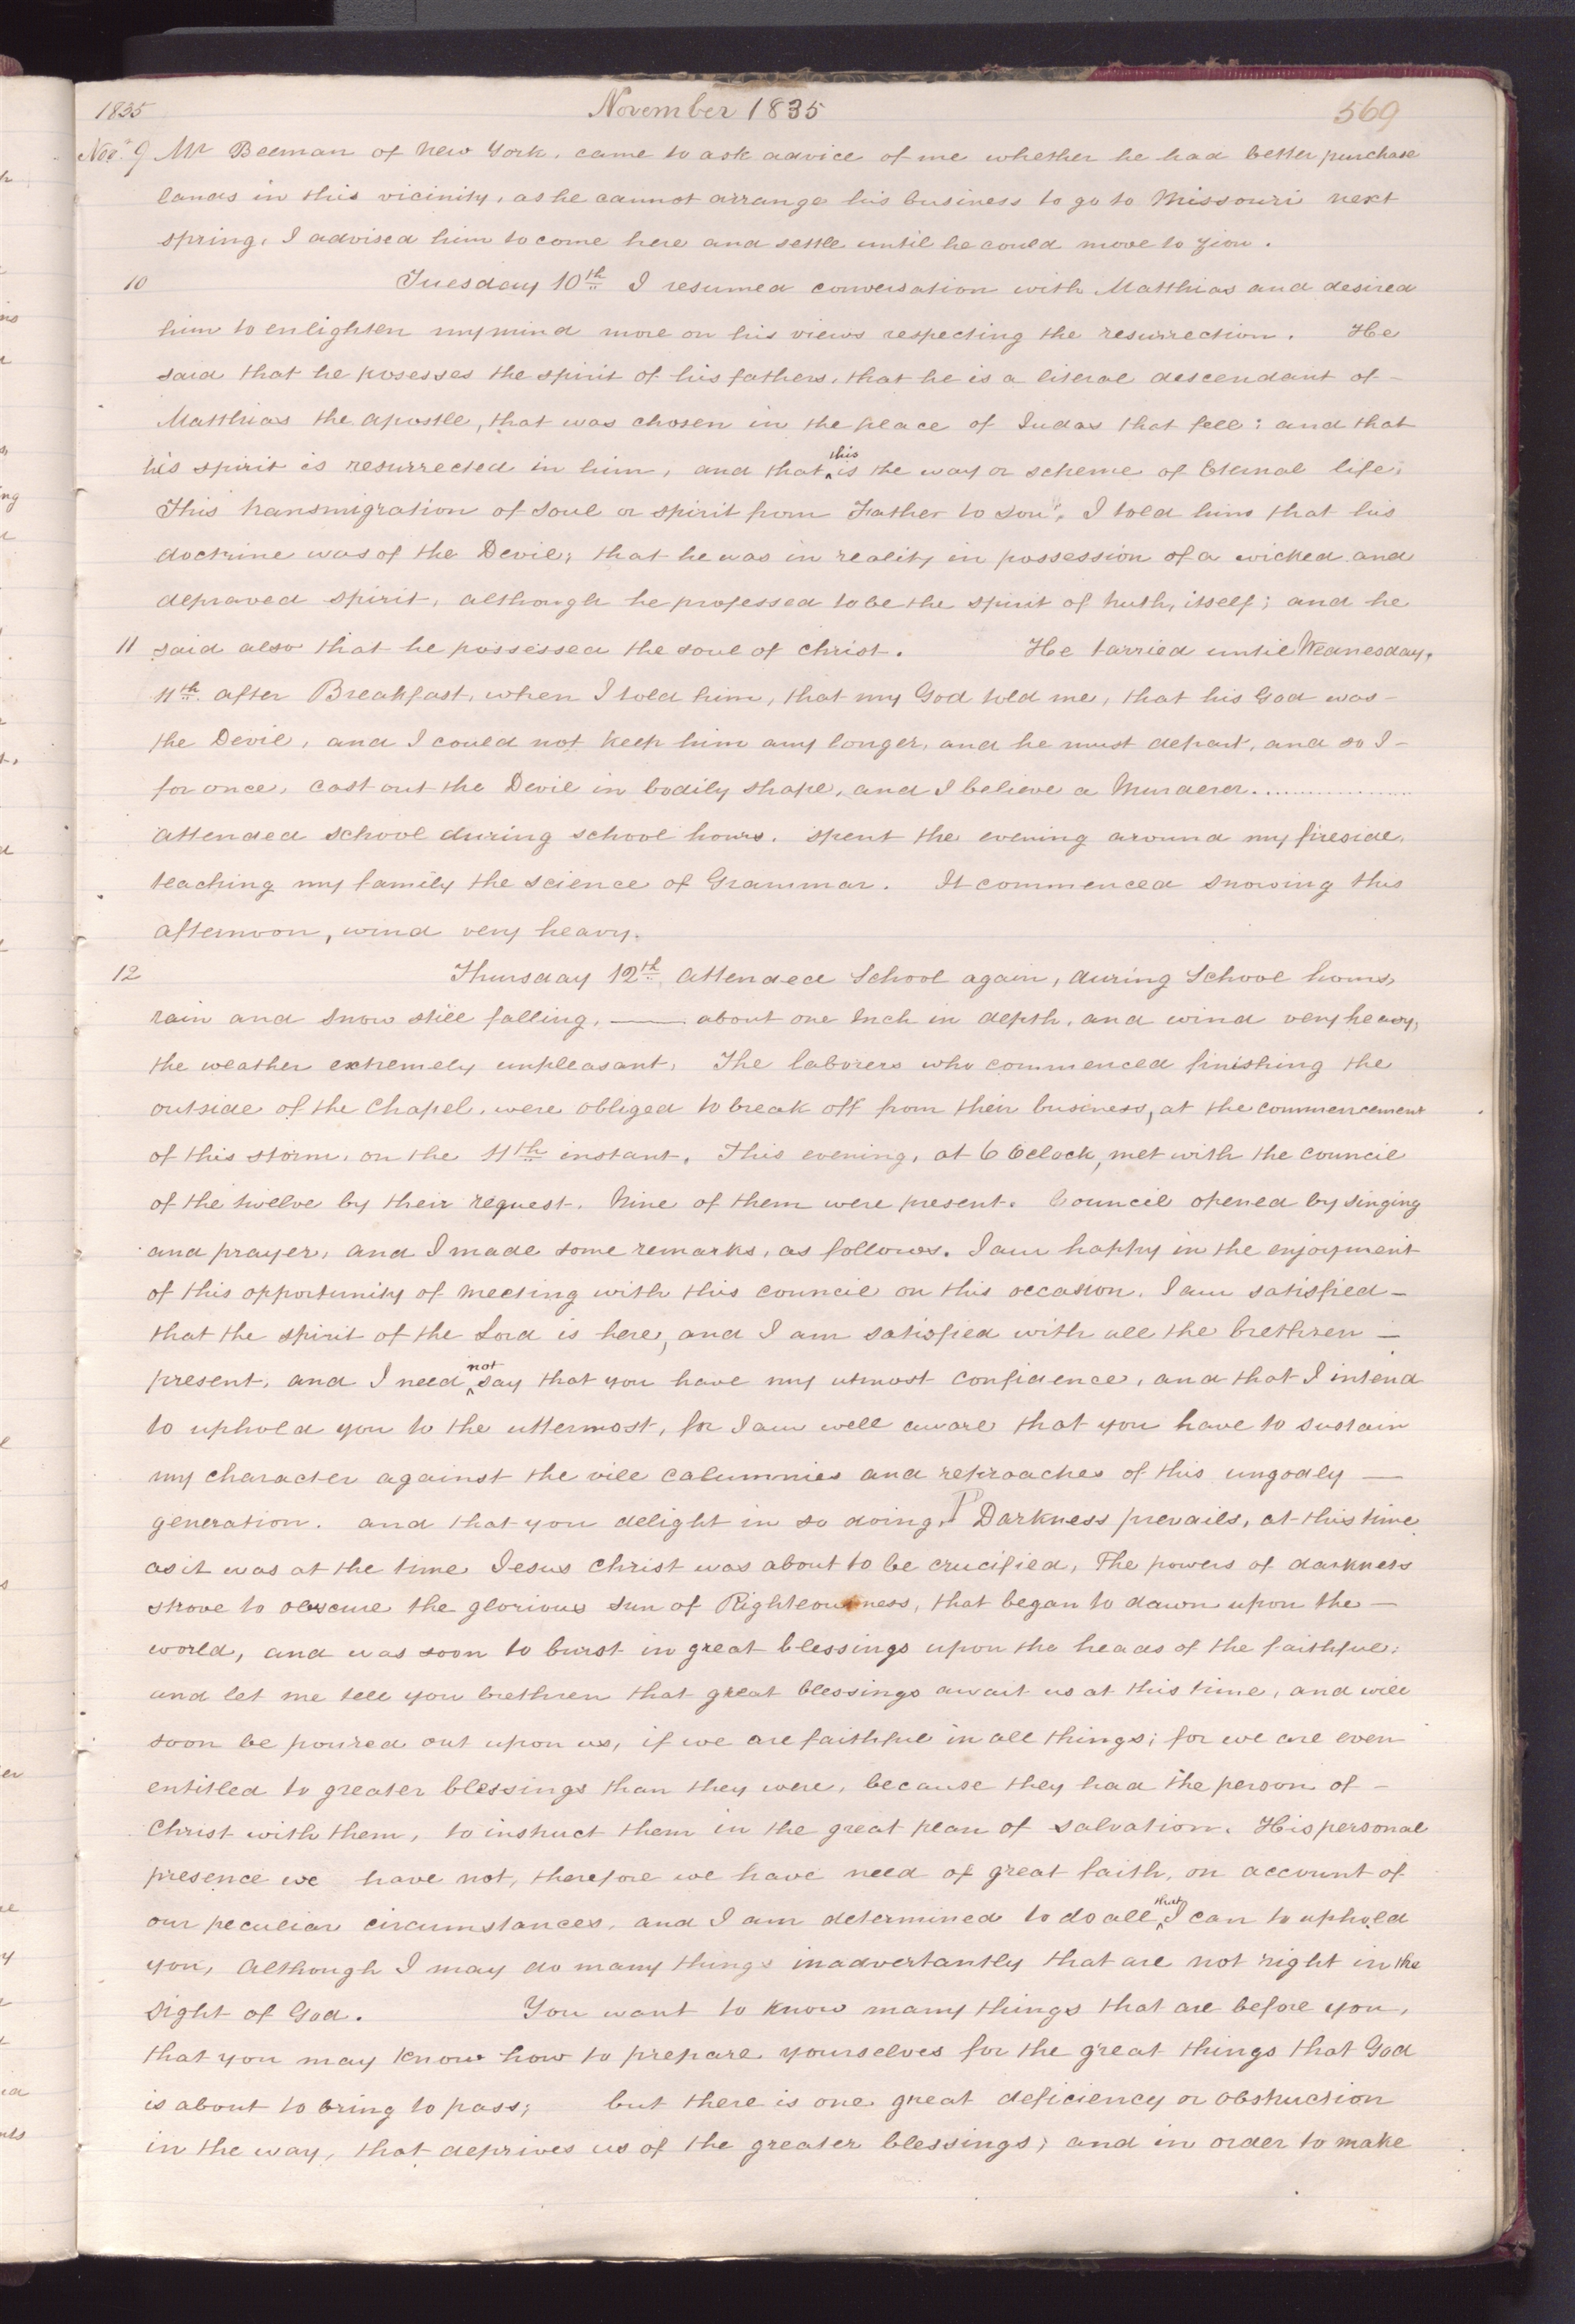 1835 November 1835 569
Nov. 9 Mr Beeman of New York, came to ask advice of me whether he had better purchase
lands in this vicinity, as he cannot arrange his business to go to Missouri next
spring, I advised him to come here and settle until he could move to Zion.
10 Tuesday 10th I resumed conversation with Matthias and desired
him to enlighten my mind more on his views respecting the resurrection. He
said that he posesses the spirit of his fathers, that he is a literal descendant of -
Matthias the apostle, that was chosen in the place of Judas that fell; and that
his spirit is resurrected in him, and that ^this is the way or scheme of Eternal life,
This transmigration of soul or spirit from Father to son". I told him that his
doctrine was of the Devil; that he was in reality in possession of a wicked and
depraved spirit, although he professed to be the spirit of truth, itself; and he
11 said also that he possessed the soul of Christ. He tarried until Wednesday,
11th after Breakfast, when I told him, that my God told me, that his God was -
the Devil, and I could not keep him any longer, and he must depart, and so I -
for once, cast out the Devil in bodily shape, and I believe a Murderer................
Attended school during school hours. Spent the evening around my fireside,
teaching my family the science of Grammar. It commenced snowing this
afternoon, wind very heavy.
12 Thursday 12th Attended School again, during School hours,
rain and snow still falling, — about one Inch in depth, and wind very heavy,
the weather extremely unpleasant, The laborers who commenced finishing the
outside of the Chapel, were obliged to break off from their business, at the commencement
of this storm, on the 11th instant. This evening, at 6 Oclock, met with the council
of the twelve by their request. Nine of them were present. Council opened by singing
and prayer, and I made some remarks, as follows. I am happy in the enjoyment
of this opportunity of meeting with this council on this occasion. I am satisfied -
that the spirit of the Lord is here, and I am satisfied with all the brethren -
present, and I need ^not say that you have my utmost confidence, and that I intend
to uphold you to the uttermost, for I am well aware that you have to sustain
my character against the vile calumnies and reproaches of this ungodly —
generation. and that you delight in so doing. P Darkness prevails, at this time
as it was at the time Jesus Christ was about to be crucified, The powers of darkness
strove to obscure the glorious Sun of Righteousness, that began to dawn upon the -
world, and was soon to burst in great blessings upon the heads of the faithful;
and let me tell you brethren that great blessings await us at this time, and will
soon be poured out upon us, if we are faithful in all things; for we are even
entitled to greater blessings than they were, because they had the person of -
Christ with them, to instruct them in the great plan of salvation. His personal
presence we have not, therefore we have need of great faith, on account of
our peculiar circumstances, and I am determined to do all ^that I can to uphold
you, Although I may do many things inadvertantly that are not right in the
sight of God. You want to know many things that are before you,
that you may know how to prepare yourselves for the great things that God
is about to bring to pass; but there is one great deficiency or obstruction
in the way, that deprives us of the greater blessings; and in order to make